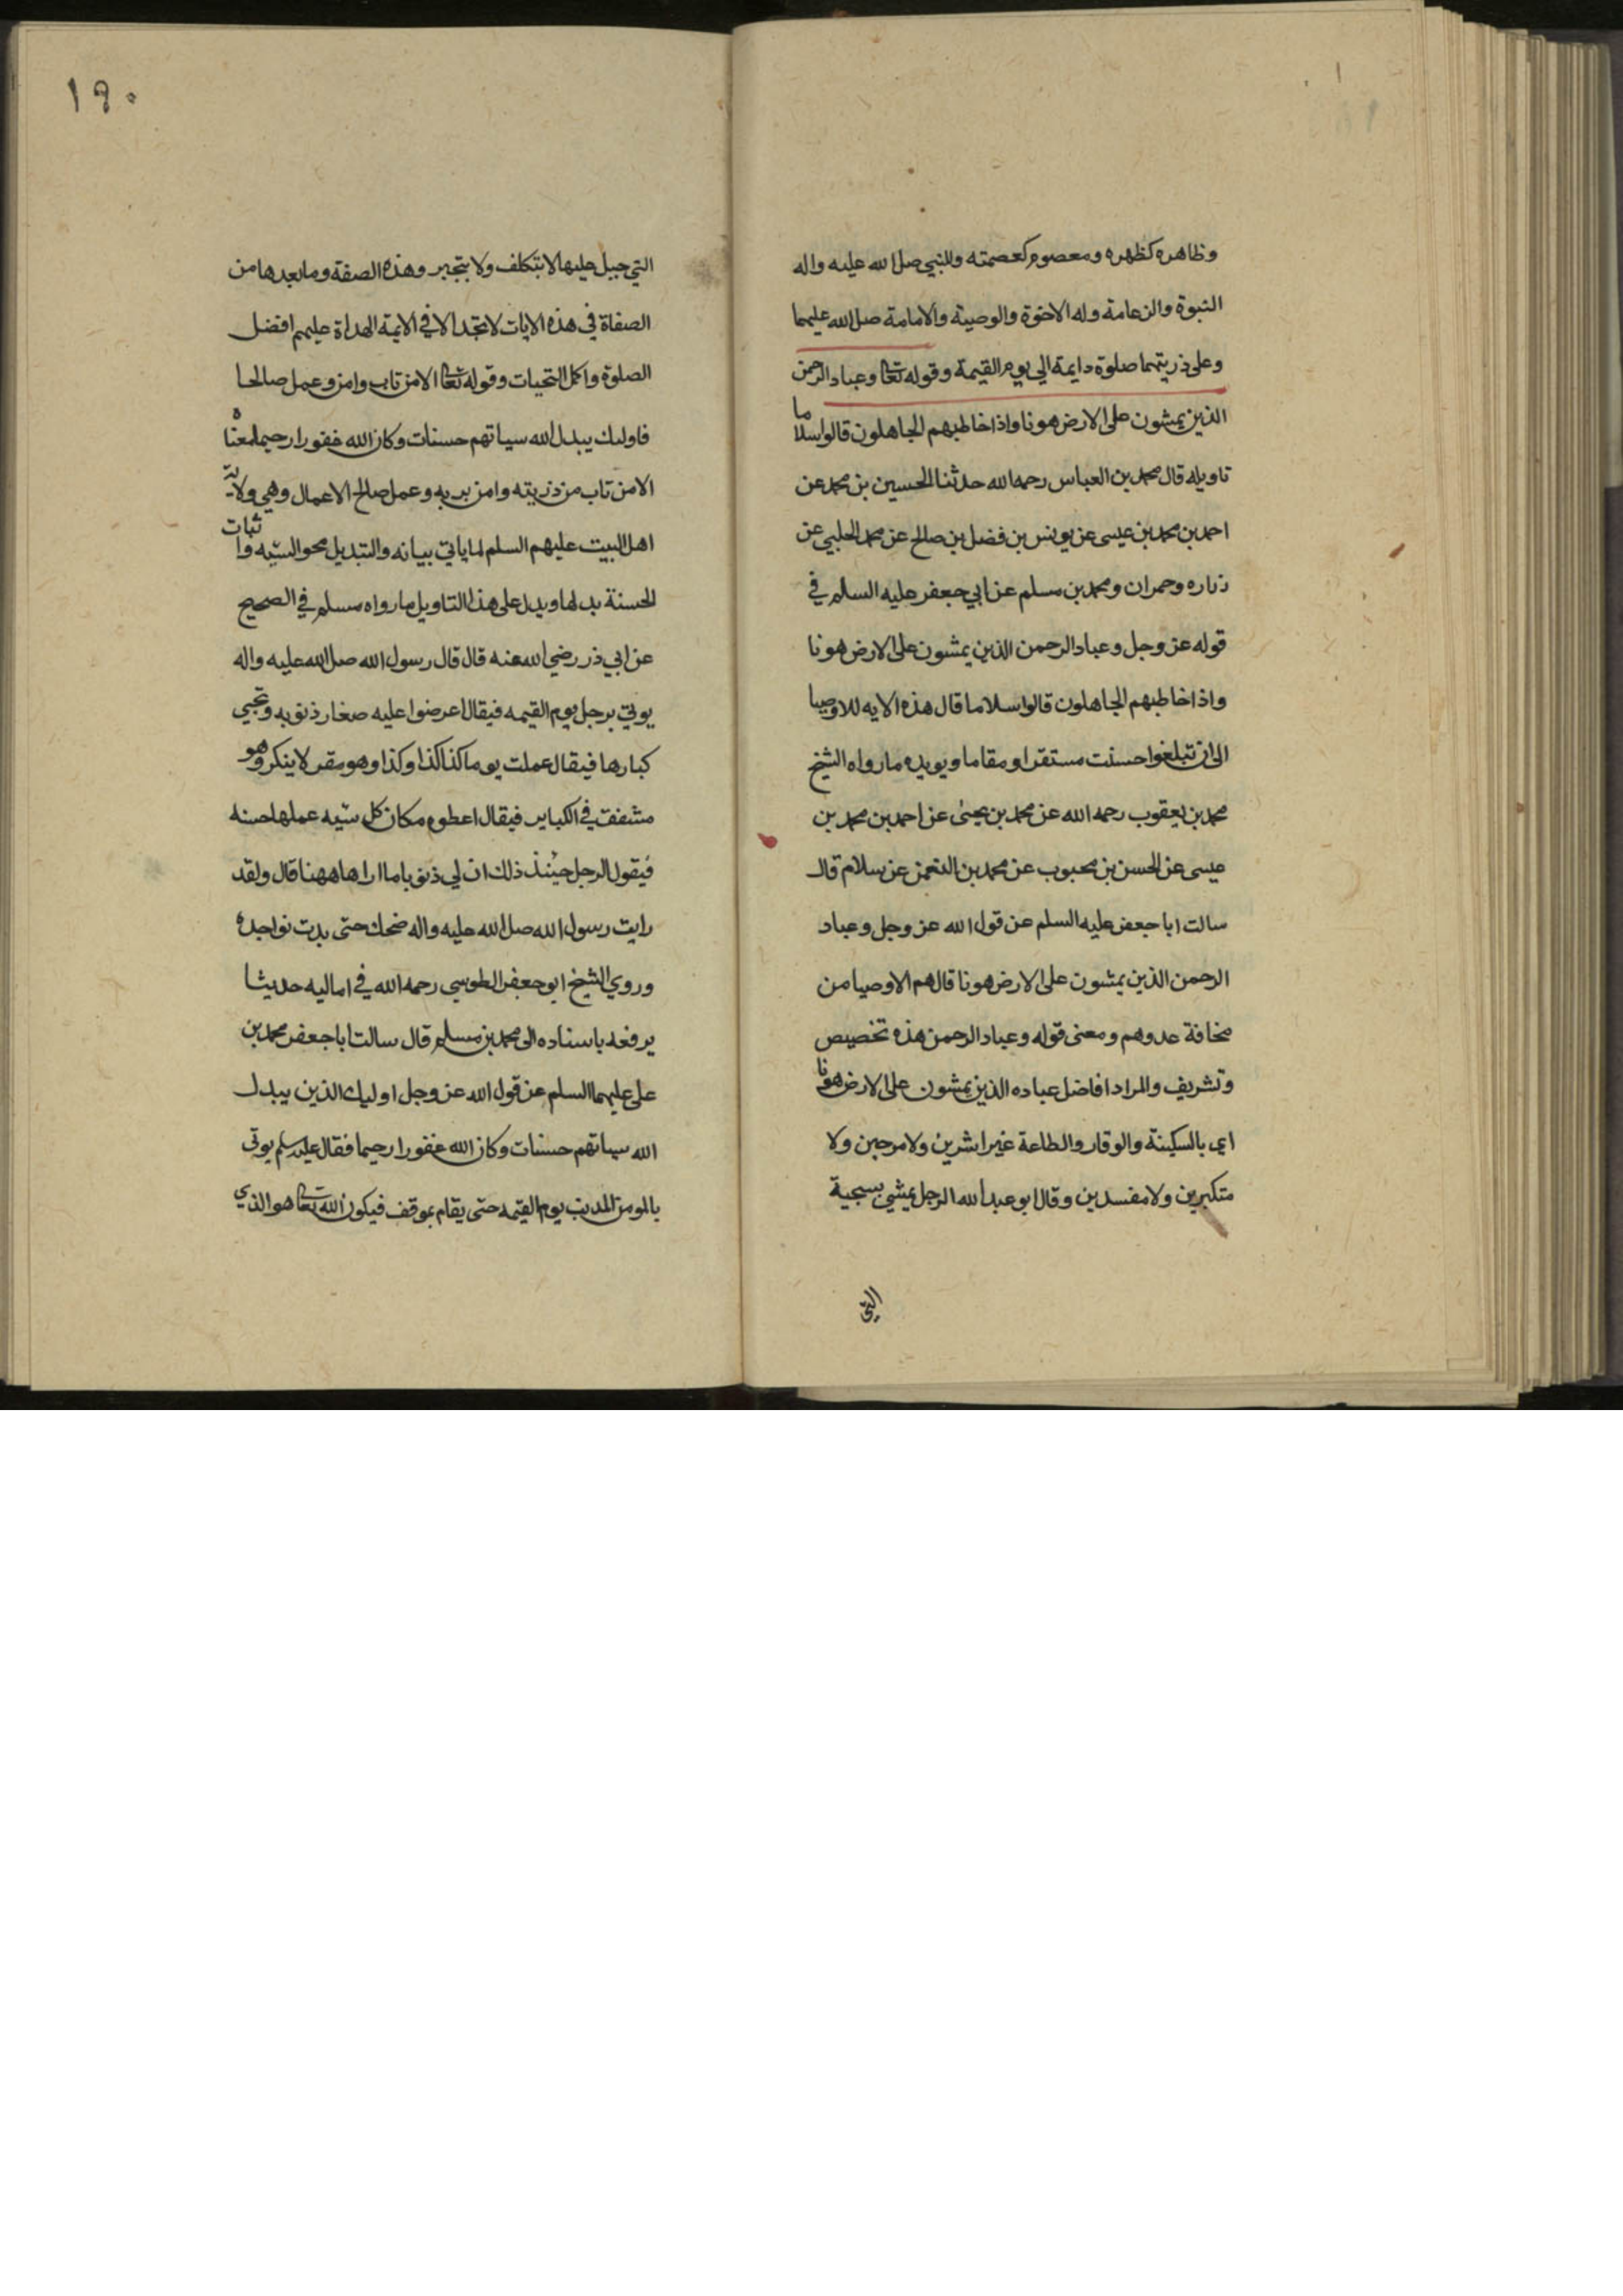 وظاهره كظهره ومعصوم كعصمته وللنبي صلى الله عليه واله
النبوة والزعامة وله الاخوة والوصية والامامة صلى الله عليهما
وعلى ذريتهما صلوة دايمة الى يوم القيمة وقوله تعا وعباد الرحمن
الذين يمشون على الارض هونا واذا خاطبهم الجاهلون قالوا سلاما
تاويله قال محمد بن العباس رحمه الله حدثنا الحسين بن محمد عن
احمد بن محمد بن عيسى عن يونس بن فضل بن صالح عن محمد الحلبي عن
زراره وحمران ومحمد بن مسلم عن ابي جعفر عليه السلم في
قوله عز وجل وعباد الرحمن الذين يمشون على الارض هونا
واذا خاطبهم الجاهلون قالوا سلاما قال هذه الايه للاوصيا
الى ان تبلغوا حسنت مستقرا ومقاما ويويده ما رواه الشيخ
محمد بن يعقوب رحمه الله عن محمد بن يحيى عن احمد بن محمد بن
عيسى عن الحسن بن محبوب عن محمد بن النعمن عن سلام قال
سالت ابا جعفر عليه السلم عن قول الله عز وجل وعباد
الرحمن الذين يمشون على الارض هونا قال هم الاوصيا من
مخافة عدوهم ومعنى قوله وعباد الرحمن هذه تخصيص
وتشريف والمراد افاضل عباده الذين يمشون على الارض هونا
اي بالسكينة والوقار والطاعة غير اشرين ولا مرحين ولا
متكبرين ولا مفسدين وقال ابو عبد الله الرجل يمشي بسجية
التي
١٩٠
التي جبل عليها لا بتكلف ولا بتجبر وهذه الصفة وما بعدها من
الصفاة في هذه الايات لا تجد الا في الايمة الهداة عليهم افضل
الصلوة واكمل التحيات وقوله تعا الا من تاب وامن وعمل صالحا
فاوليك يبدل الله سياتهم حسنات وكان الله غفورا رحيما معناه
الا من تاب من ذريته وامن بربه وعمل صالح الاعمال وهي ولاية
اهل البيت عليهم السلم لما ياتي بيانه والتبديل محو السيه واثبات
الحسنة بدلها ويدل على هذا التاويل ما رواه مسلم في الصحيح
عن ابي ذر رضي الله عنه قال قال رسول الله صلى الله عليه واله
يوتي برجل يوم القيمه فيقال اعرضوا عليه صغار ذنوبه وتجبي
كبارها فيقال عملت يوما كذا كذا وكذا وهو مقر لا ينكر وهو
مشفق في الكباير فيقال اعطوه مكان كل سيه عملها حسنه
فيقول الرجل حينئذ ذلك ان لي ذنوبا ما اراها ههنا قال ولقد
رايت رسول الله صلى الله عليه واله ضحك حتى بدت نواجده
وروي الشيخ ابو جعفر الطوسي رحمه الله في اماليه حديثا
يرفعه باسناده الى محمد بن مسلم قال سالت ابا جعفر محمد بن
على عليهما السلم عن قول الله عز وجل اوليك الذين يبدل
الله سياتهم حسنات وكان الله غفورا رحيما فقال عليه السلم يوتى
بالمومن المدنب يوم القيمه حتى يقام بموقف فيكون الله تعا هو الذي